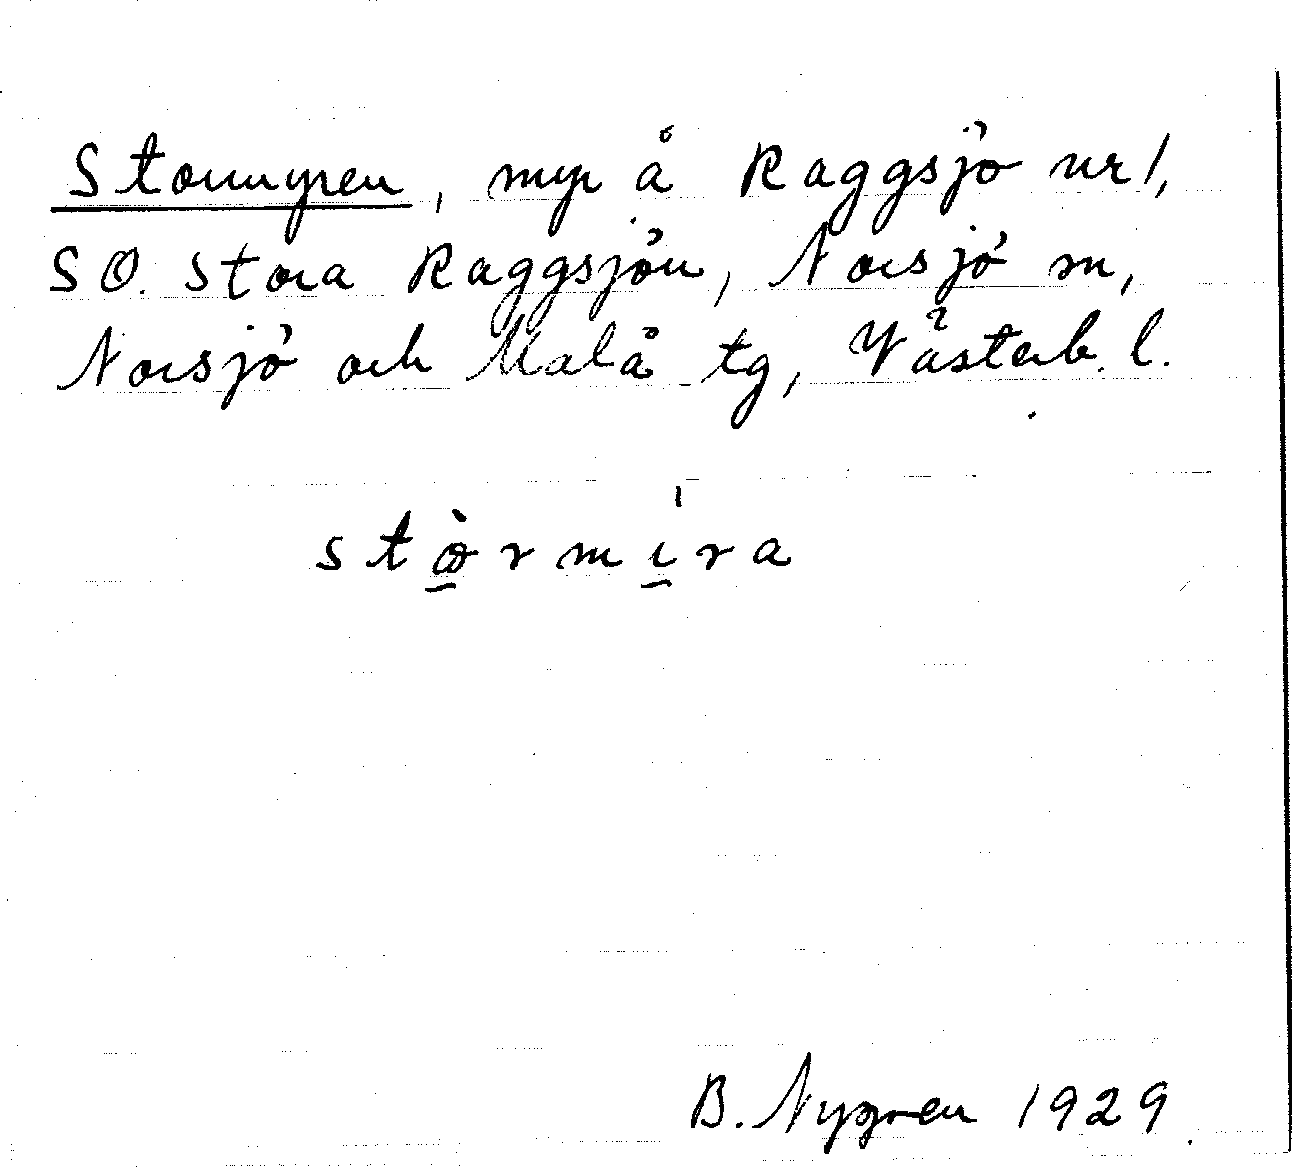 Stormyren, myr å Raggsjö nr 1,
SO. Stora Raggsjön, Norsjö sn,
Norsjö och Malå tg, Västerb. l.
stò̱rmi̱ra
B. Nygren 1929